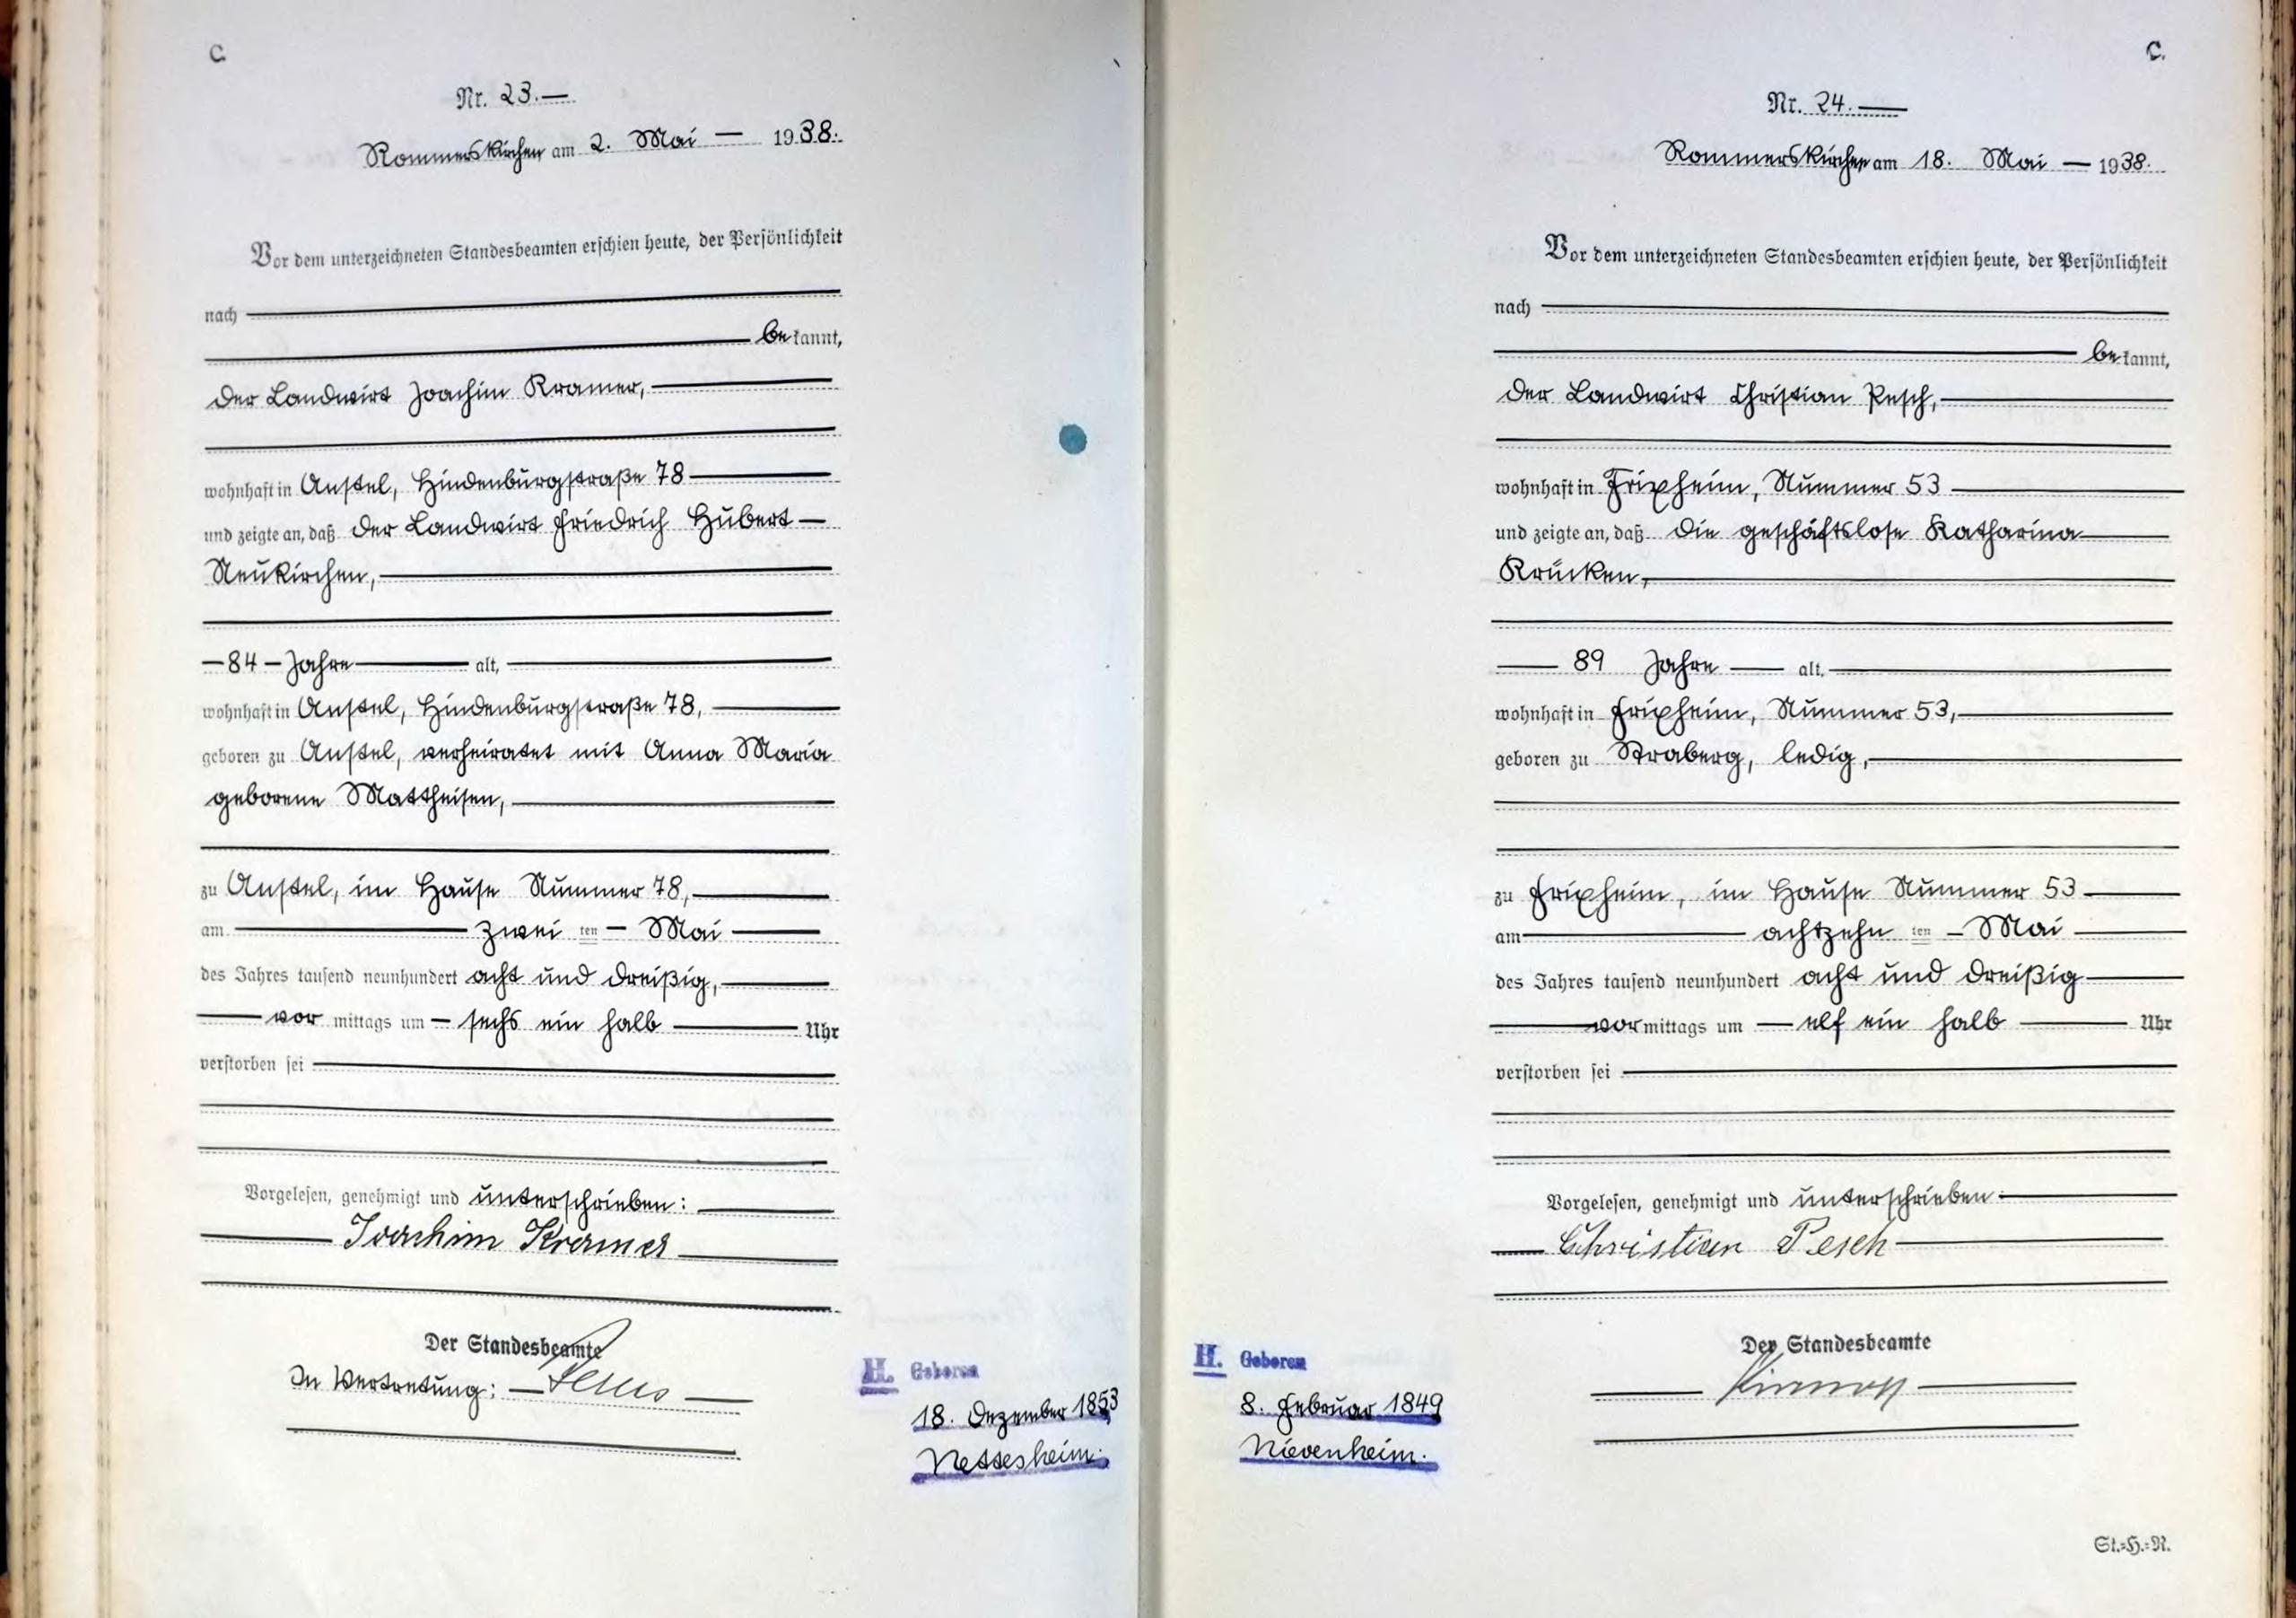 C.
Nr. 23.
Rommerskirchen am 2. Mai 1938.
Vor dem unterzeichneten Standesbeamten erschien heute, der Persönlichkeit
nach
bekannt,
der Landwirt Joachim Kramer,
wohnhaft in Anstel, Hindenburgstraße 78
und zeigte an, daß der Landwirt Friedrich Hubert
Neukirchen,
84 Jahre alt,
wohnhaft in Anstel, Hindenburgstraße 78,
geboren zu Anstel, verheiratet mit Anna Maria
geborene Mattheisen,
zu Anstel, im Hause Nummer 78,
am zwei ten Mai
des Jahres tausend neunhundert acht und dreißig,
vor mittags um sechs ein halb Uhr
verstorben sei
Vorgelesen, genehmigt und unterschrieben:
Joachim Kramer
Der Standesbeamte
In Vertretung:
H. Geboren
18. Dezember 1853
Nettesheim.
C.
Nr. 24.
Rommerskirchen am 18. Mai 1938.
Vor dem unterzeichneten Standesbeamten erschien heute, der Persönlichkeit
nach
bekannt,
der Landwirt Christian Pesch,
wohnhaft in Frixheim, Nummer 53
und zeigte an, daß die geschäftslose Katharina
Krücken,
89 Jahre alt,
wohnhaft in Frixheim, Nummer 53,
geboren zu Straberg, ledig,
zu Frixheim, im Hause Nummer 53
am achtzehn ten Mai
des Jahres tausend neunhundert acht und dreißig
vormittags um elf ein halb Uhr
verstorben sei
Vorgelesen, genehmigt und unterschrieben
Christian Pesch
Der Standesbeamte
H. Geboren
8. Februar 1849
Nievenheim.
St.=H.=R.